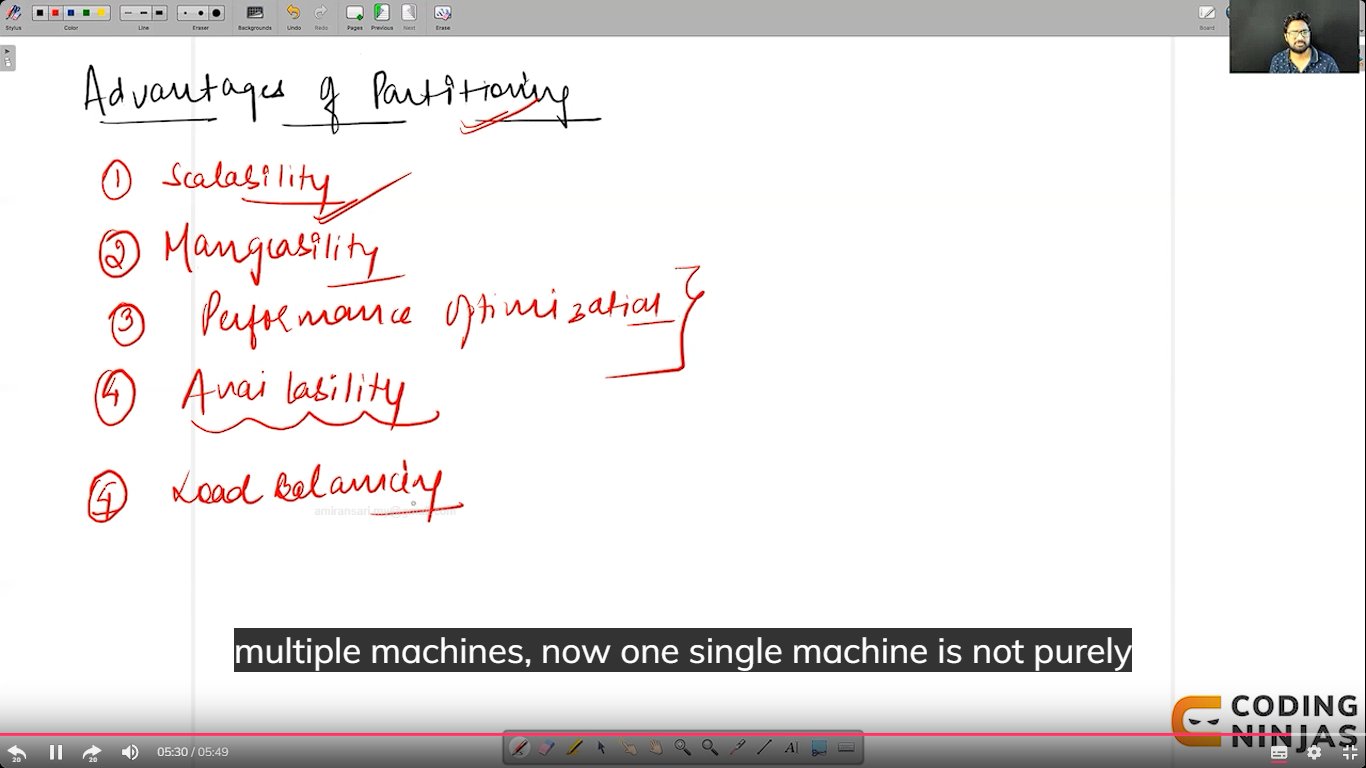 Stylus
Color
Line
Eraser
Backgrounds
Undo
Redo
Pages
Previous
Next
Erase
Board
Advantages of Partitioning
① Scalability
② Mangeability
③ Performance Optimization
④ Availability
④ Load Balancing
multiple machines, now one single machine is not purely
CODING
NINJAS
20
20
05:30 / 05:49
A